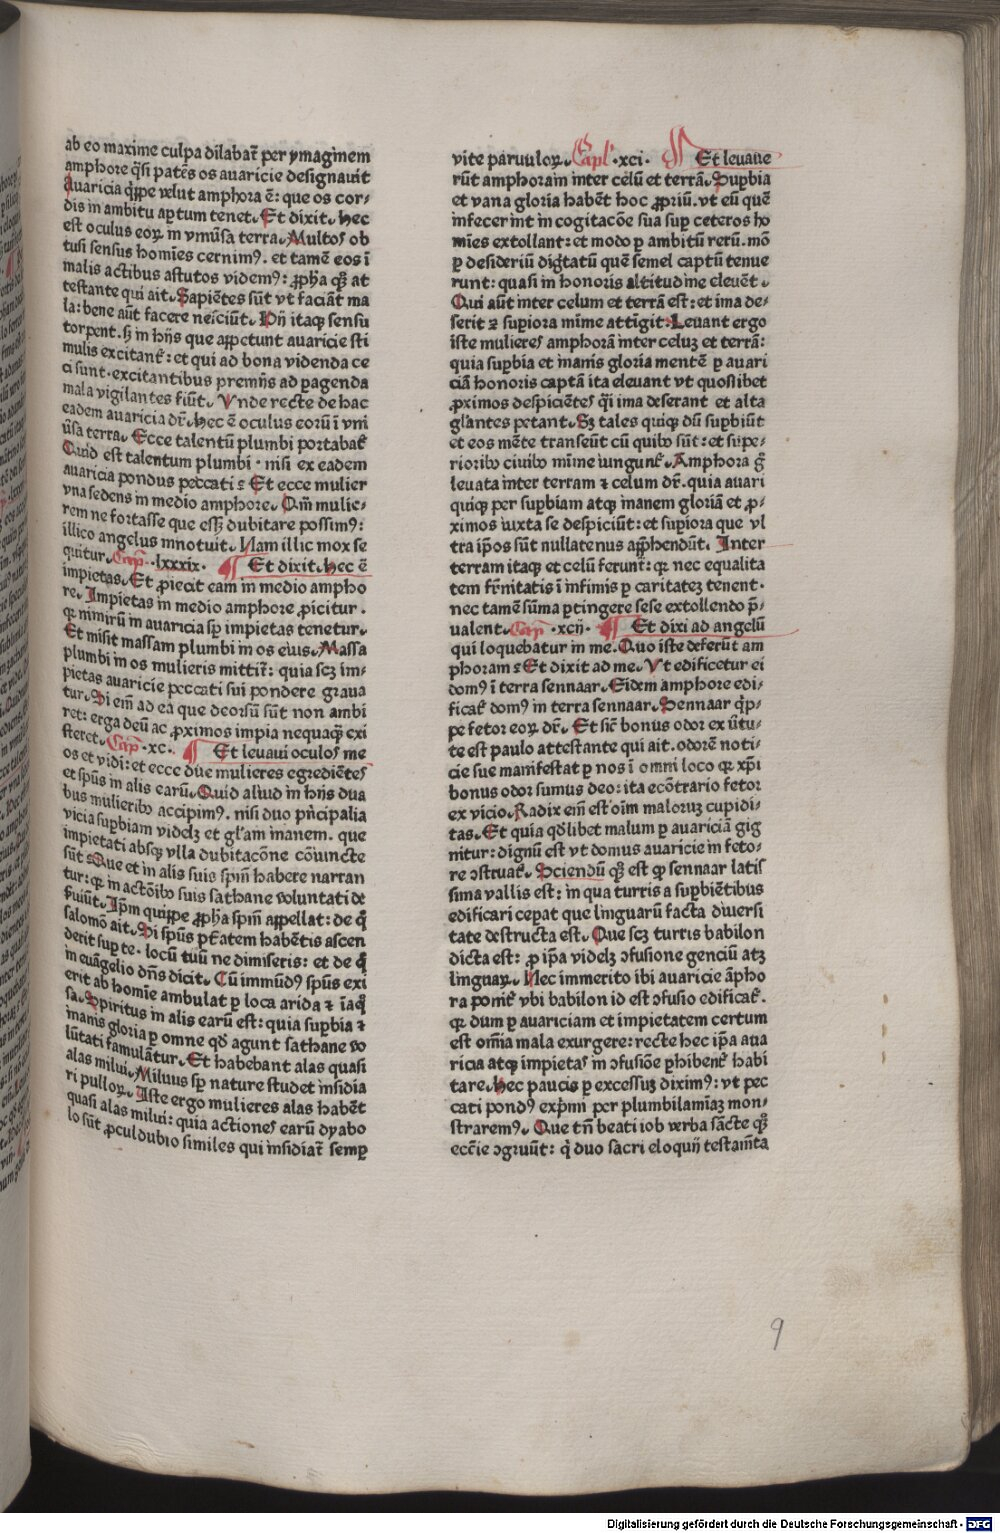 ab eo maxime culpa dilabat᷑ per ymaginem
amphore q̄si patēs os avaricie designavit
Avaricia q̄ꝑe velut amphora ē: que os cor⸗
dis in ambitu apertum tenet. Et dixit. hec
est oculus eoꝝ in vniūsa terra. Multos ob
tusi sensus homies cernimꝰ. et tamē eos ī
malis actibus astutos videmꝰ: ꝓph̄a qꝫ at
testante qui ait. Sapiētes sūt vt faciāt ma
la: bene aūt facere nesciūt. Hij itaqꝫ sensu
torpent. sꝫ in hijs que appetunt avaricie sti
mulis excitant᷑: et qui ad bona videnda ce
ci sunt. excitantibus premijs ad pagenda
mala vigilantes fiūt. Vnde recte de hac
eadem avaricia dr̄. Hec ē oculus eorū ī vni
ūsa terra. Ecce talentū plumbi portabat᷑
Quid est talentum plumbi. nisi ex eadem
avaricia pondus peccati: Et ecce mulier
vna sedens in medio amphore. Qm̄ mulie⸗
rem ne fortasse que esset dubitare possimꝰ:
illico angelus innotuit. Nam illic mox se
quitur. Cap̄ .lxxxix. ¶ Et dixit. hec ē
impietas. Et ꝓiecit eam in medio ampho
re. Impietas in medio amphore ꝓicitur.
qꝛ nimirū in avaricia sp̄ impietas tenetur.
Et misit massam plumbi in os eius. Massa
plumbi in os mulieris mittit᷑: quia scꝫ im⸗
pietas avaricie peccati sui pondere grava
tur. Si em̄ ad ea que deorsū sūt non ambi
ret: erga deū ac ꝓximos impia nequaqꝫ exi
steret. Cap̄ .xc. ¶ Et levavi oculos me
os et vidi: et ecce due mulieres egrediētes
et sp̄us in alis earū. Quid aliud in hijs dua
bus mulierib⁹ accipimꝰ. nisi duo pn̄cipalia
vicia supbiam videlꝫ et gl̄am inanem. que
impietati absqꝫ vlla dubitacōne cōiuncte
sūt: Que et in alis suis spm̄ habere narran
tur: qꝛ in actōib⁹ suis sathane voluntati de
serviūt. Ipm̄ quippe ꝓph̄a spm̄ appellat: de q̄
salomō ait. Si spūs pt̄atem habētis ascen
derit sup te. locū tuū ne dimiseris: et de q̄
in evāgelio dn̄s dicit. Cū immūdꝰ spūs exi
erit ab homīe ambulat p loca arida et īaq̄
sa. Spiritus in alis earū est: quia supbia et
inanis gloria p omne qd̄ agunt sathane vo
lūtati famulātur. Et habebant alas quasi
alas milui. Miluus sp̄ nature studet insidia
ri pulloꝝ. Iste ergo mulieres alas habēt
quasi alas milui: quia actiones earū dyabo
lo sūt ꝓculdubio similes qui insidiat᷑ semp
vite parvuloꝝ. Capl' .xci. ¶ Et levave
rūt amphoram inter celū et terrā. Supbia
et vana gloria habēt hoc ꝓpriū. vt eū quē
infecerint in cogitacōe sua sup ceteros ho
mīes extollant: et modo p ambitū rerū. mō
p desideriū dignitatū quē semel captū tenue
runt: quasi in honoris altitudine elevēt.
Qui aūt inter celum et terrā est: et ima de⸗
serit et supiora mīme attigit. Levant ergo
iste mulieres amphorā inter celuꝫ et terrā:
quia supbia et inanis gloria mentē p avari
ciā honoris captā ita elevant vt quoslibet
ꝓximos despiciētes q̄i ima deserant et alta
gl̄antes petant. Sꝫ tales quiqꝫ dū supbiūt
et eos mēte transeūt cū quib⁹ sūt: et supe⸗
riorib⁹ civib⁹ mīme iungunt᷑. Amphora g̊
levata inter terram et celum dr̄. quia avari
quiqꝫ per supbiam atqꝫ inanem gloriā et ꝓ⸗
ximos iuxta se despiciūt: et supiora que vl
tra ip̄os sūt nullatenus app̄hendūt. Inter
terram itaqꝫ et celū ferunt᷑: qꝛ nec equalita
tem fr̄nitatis ī infimis p caritateꝫ tenent.
nec tamē sūma ptingere sese extollendo p̄⸗
valent. Cap̄ .xcij. ¶ Et dixi ad angelū
qui loquebatur in me. Quo iste deferūt am
phoram: Et dixit ad me. Vt edificetur ei
domꝰ ī terra sennaar. Eidem amphore edi⸗
ficat᷑ domꝰ in terra sennaar. Sennaar q̄p⸗
pe fetor eoꝝ dr̄. Et sic̄ bonus odor ex ūtu⸗
te est paulo attestante qui ait. odorē noti⸗
cie sue manifestat p nos ī omni loco qꝛ xp̄i
bonus odor sumus deo: ita ecōtrario fetor
ex vicio. Radix em̄ est oīm maloruꝫ cupidi⸗
tas. Et quia qd̄libet malum p avariciā gig
nitur: dignū est vt domus avaricie in feto⸗
re ɔstruat᷑. Sciendū qꝫ est qꝫ sennaar latis
sima vallis est: in qua turris a supbiētibus
edificari cepat que linguarū facta diversi
tate destructa est. Que scꝫ turris babilon
dicta est: ꝓ ip̄a videlꝫ ɔfusione genciū atꝫ
linguaꝝ. Nec immerito ibi avaricie āpho
ra ponit᷑ vbi babilon id est ɔfusio edificat᷑.
qꝛ dum p avariciam et impietatem certum
est om̄ia mala exurgere: recte hec ip̄a ava
ricia atqꝫ impietas in ɔfusiōe phibent᷑ habi
tare. Hec paucis p excessuꝫ diximꝰ: vt pec
cati pondꝰ expm̄i per plumbilamiaꝫ mon⸗
straremꝰ. Que tn̄ beati iob verba sācte qꝫ
ecc̄ie ɔgruūt: q̇ duo sacri eloquij testam̄ta
9
Digitalisierung gefördert durch die Deutsche Forschungsgemeinschaft - DFG